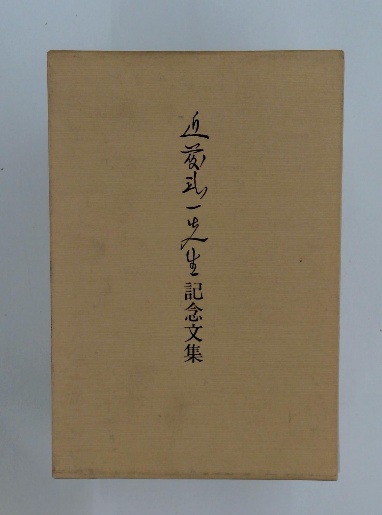 近藤弘一先生記念文集